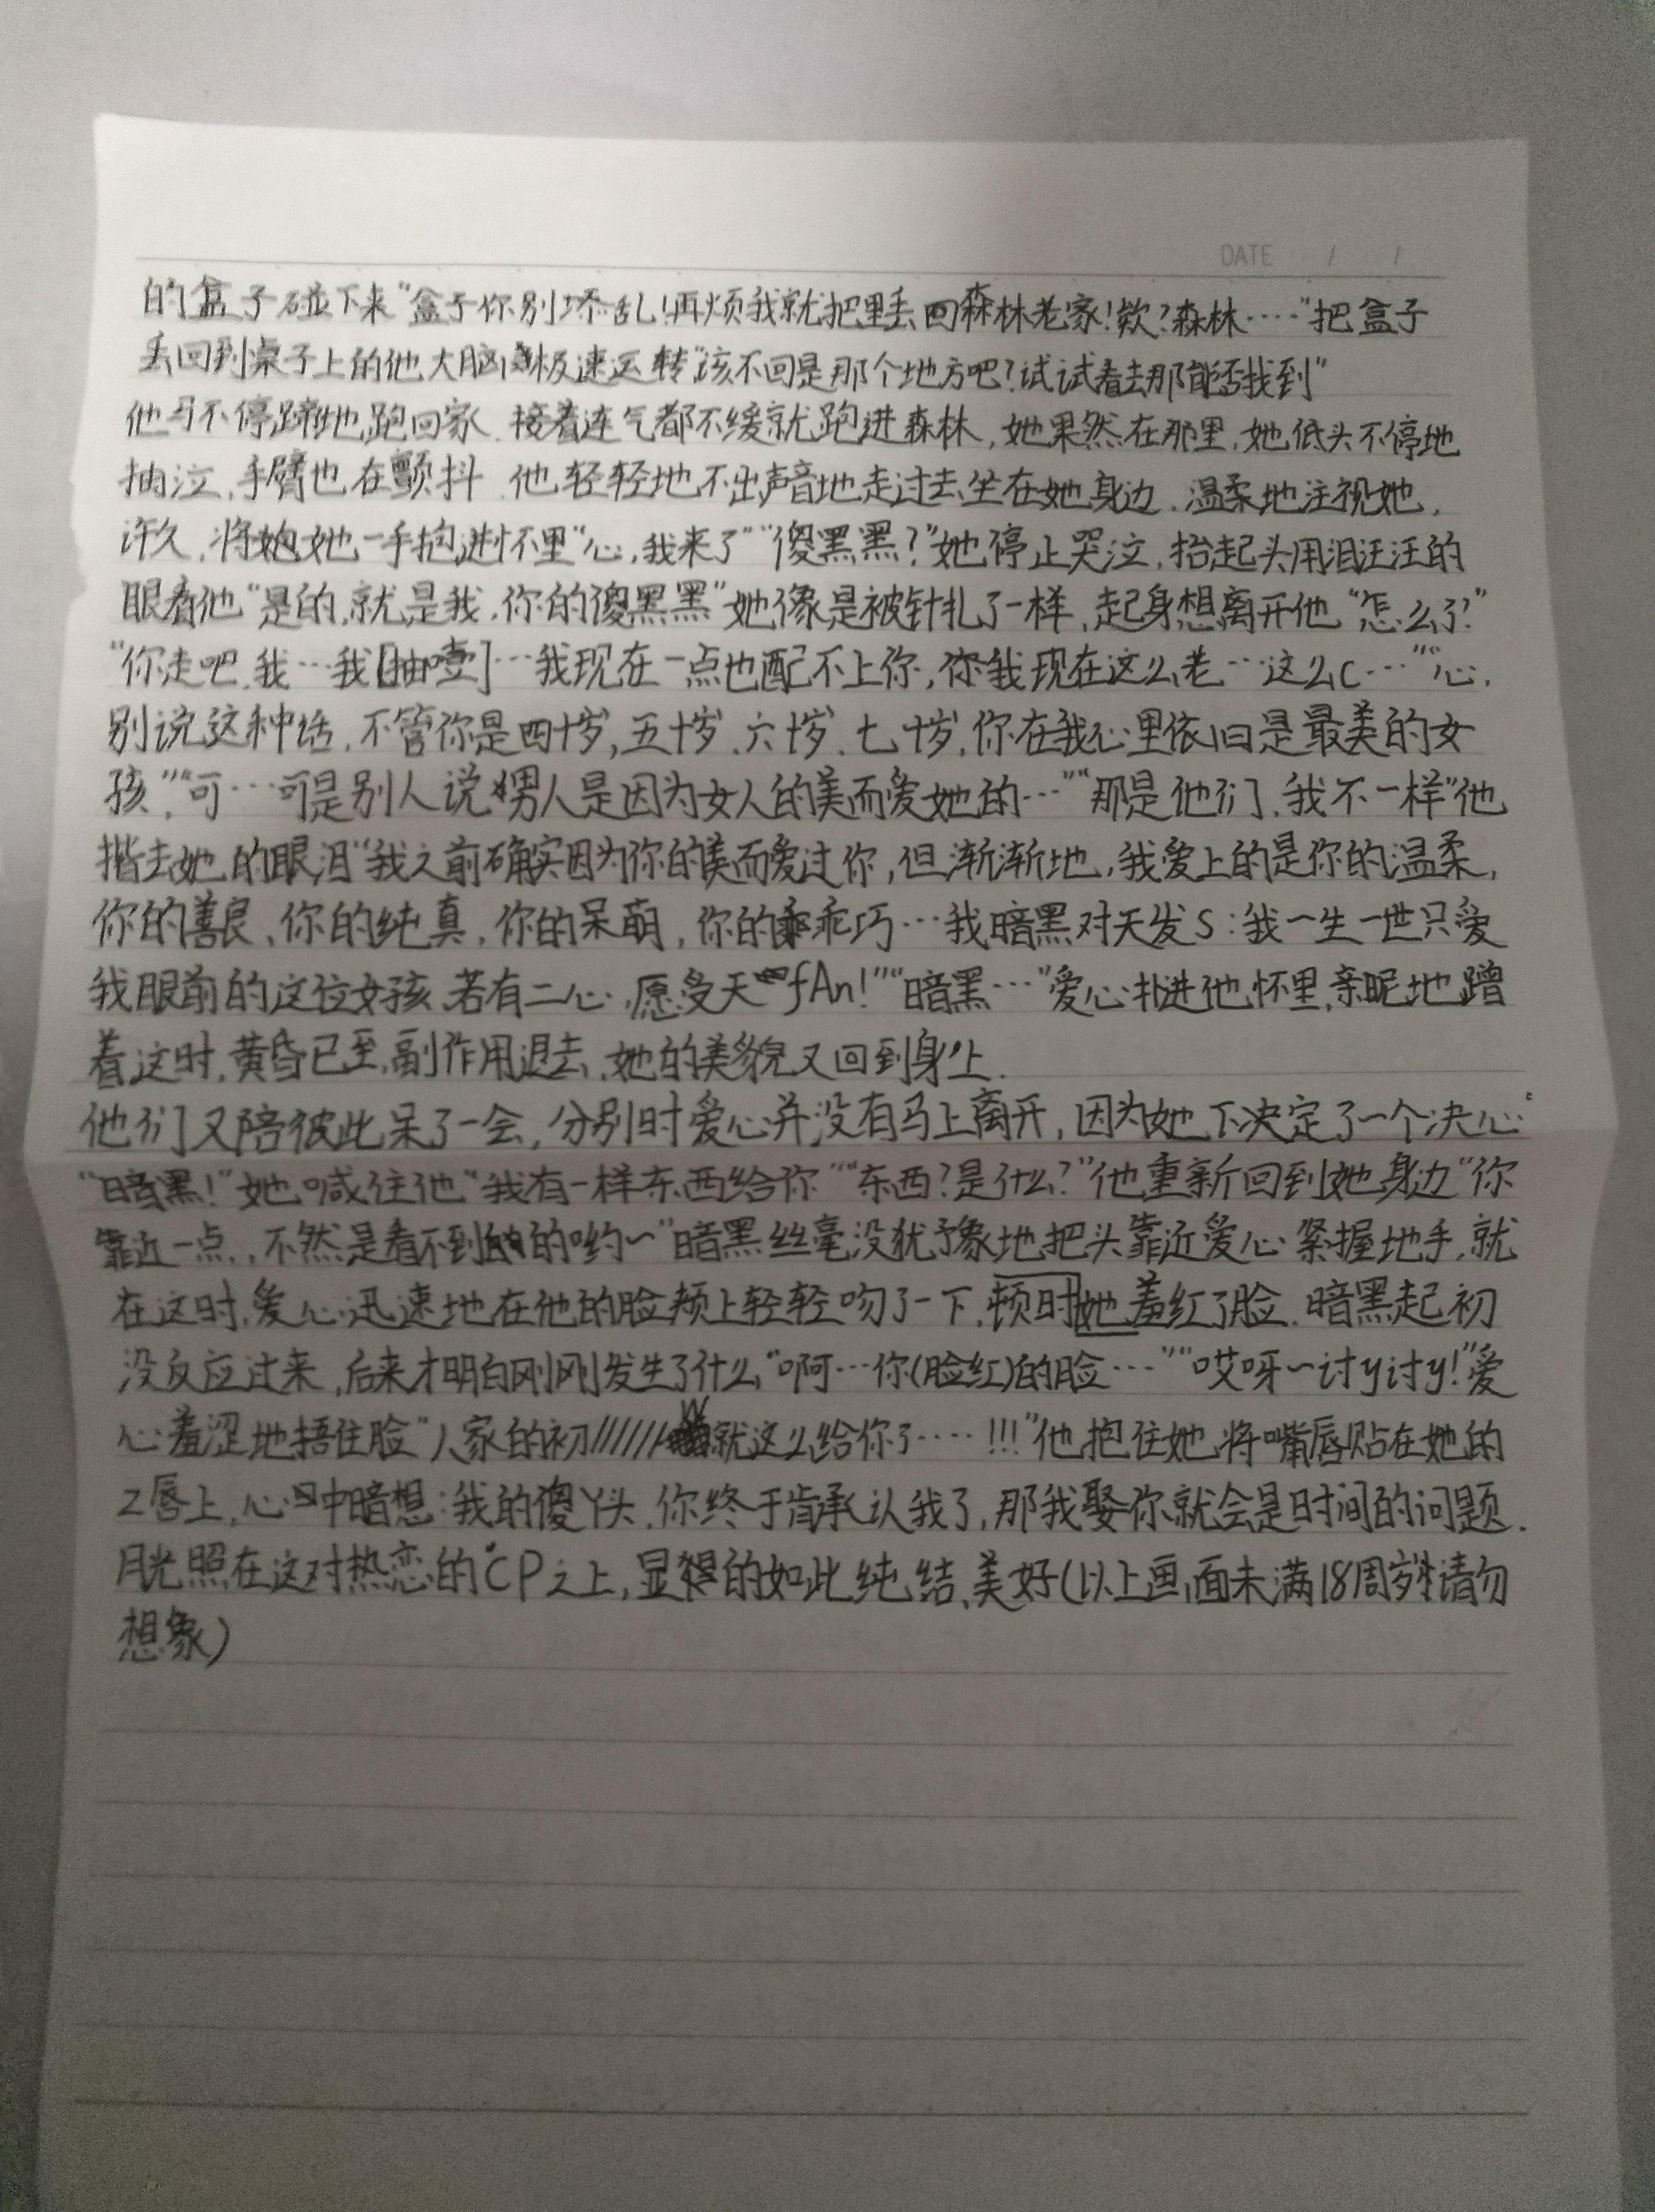 DATE / /
的盒子碰下来“盒子你别添乱!再烦我就把里丢回森林老家!欸?森林····”把盒子
丢回到桌子上的他大脑极速运转“该不回是那个地方吧?试试看去那能否找到”
他马不停蹄地跑回家.接着连气都不缓就跑进森林,她果然在那里,她低头不停地
抽泣,手臂也在颤抖.他轻轻地不出声音地走过去,坐在她身边.温柔地注视她,
许久,将她一手抱进怀里“心,我来了”“傻黑黑?”她停止哭泣,抬起头用泪汪汪的
眼看他“是的,就是我,你的傻黑黑”她像是被针扎了一样,起身想离开他“怎么了?”
“你走吧,我···我[抽噎]···我现在一点也配不上你,你我现在这么老···这么c···”“心,
别说这种话,不管你是四十岁,五十岁、六十岁、七十岁,你在我心里依旧是最美的女
孩”“可···可是别人说男人是因为女人的美而爱她的···”“那是他们,我不一样”他
揩去她的眼泪“我之前确实因为你的美而爱过你,但渐渐地,我爱上的是你的温柔,
你的善良、你的纯真,你的呆萌,你的乖巧···我暗黑对天发S:我一生一世只爱
我眼前的这位女孩,若有二心,愿受天fAn!”“暗黑···”爱心扑进他怀里,亲昵地蹭
着这时,黄昏已至,副作用退去,她的美貌又回到身上.
他们又陪彼此呆了一会,分别时爱心并没有马上离开,因为她下决定了一个决心:
“暗黑!”她喊住他“我有一样东西给你”“东西?是什么?”他重新回到她身边“你
靠近一点,,不然是看不到的哟~”暗黑丝毫没犹予象地把头靠近爱心紧握地手,就
在这时,爱心迅速地在他的脸颊上轻轻吻了一下,顿时她羞红了脸.暗黑起初
没反应过来,后来才明白刚刚发生了什么“啊···你(脸红)的脸···”“哎呀~讨y讨y!”爱
心羞涩地捂住脸“人家的初//////W就这么给你了····!!!”他抱住她,将嘴唇贴在她的
Z唇上,心中暗想:我的傻丫头,你终于肯承认我了,那我娶你就会是时间的问题.
月光照在这对热恋的CP之上,显得的如此纯结、美好(以上画面未满18周岁请勿
想象)